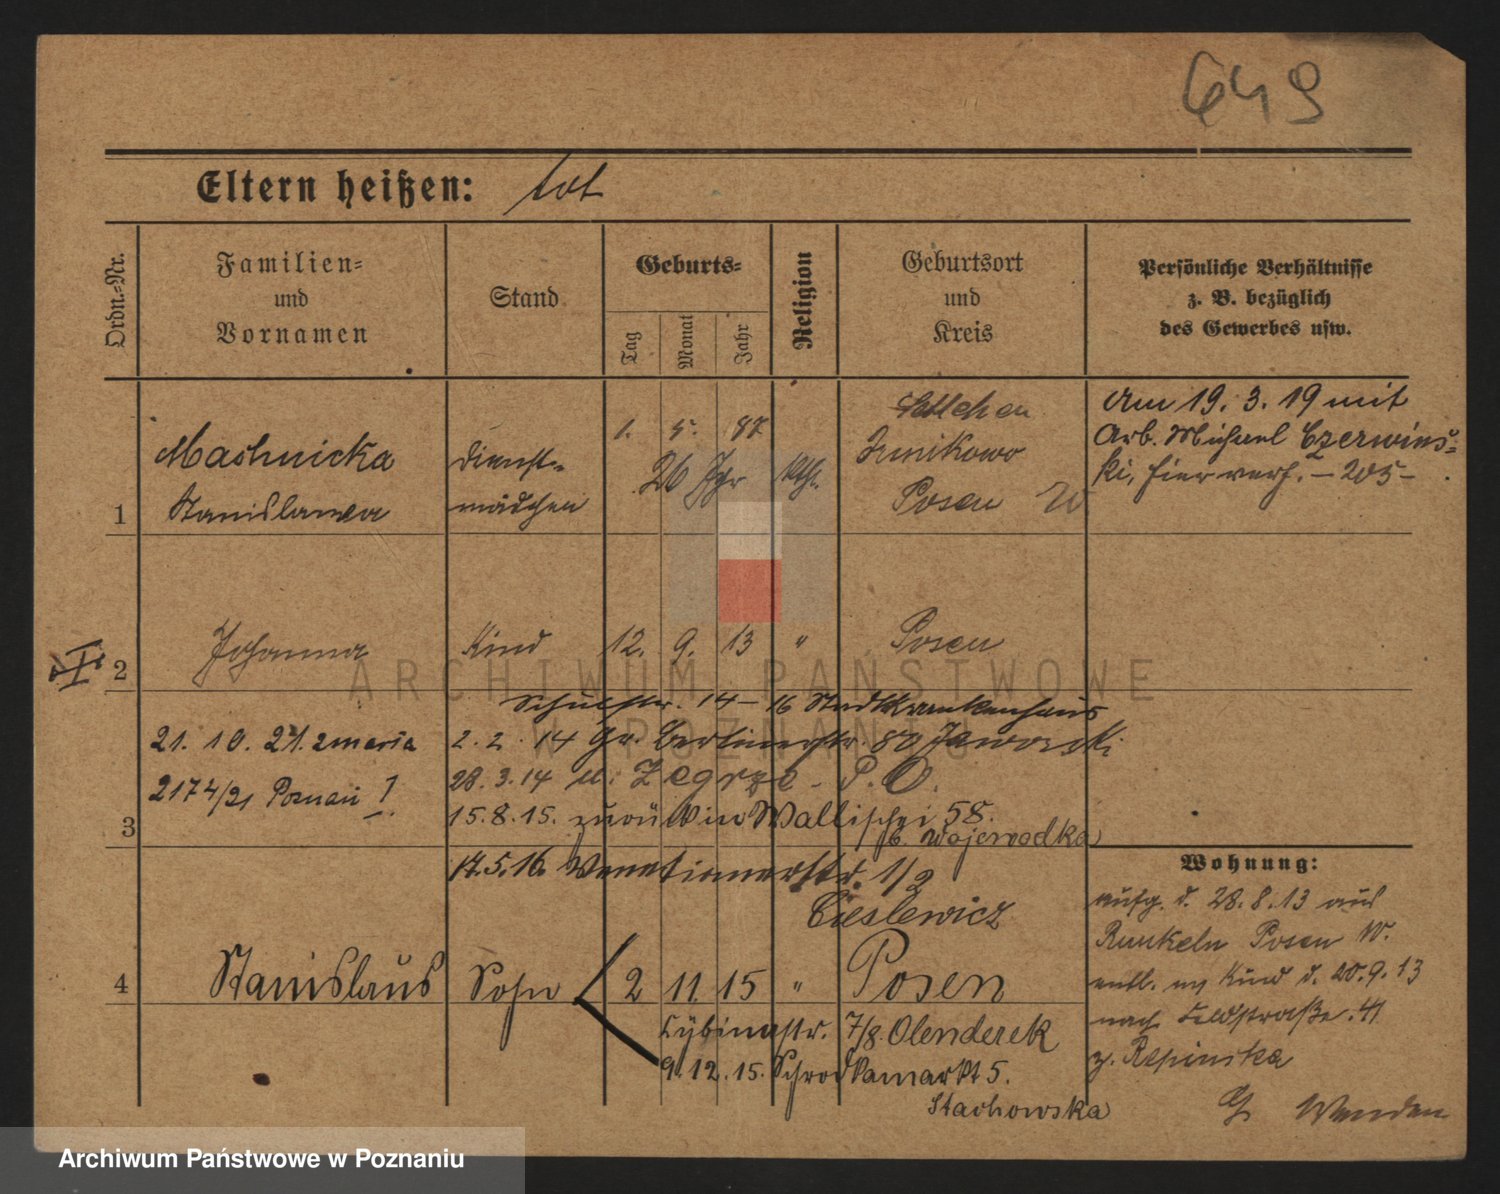 649
Eltern heißen: tot
Ordn.-Nr.
Familien-
und
Vornamen
Stand
Geburts-
Tag
Monat
Jahr
Religion
Geburtsort
und
Kreis
Persönliche Verhältnisse
z. B. bezüglich
des Gewerbes usw.
1
Machnicka
Stanislawa
Dienst-
mädchen
1. 5. 87
26 Jhr
kthl.
Posen W
Am 19. 3. 19 mit
Arb. Michael Czerwins-
ki, hier verh. — 205 —
2
Johanna
Kind
12. 9. 13
"
Posen
ARCHIWUM PAŃSTWOWE
W POZNANIU
14 – 16 Stadtkrankenhaus
21. 10. 21. zmarła
2174/21 Poznań !
2. 2. 14 Gr. Berlinerstr. 80 Jaworski
28. 3. 14 n. Zegrze P. O.
15. 8. 15. zurück in Wallischei 58.
b. Wojewodka
3
17. 5. 16. Venetianerstr. 1/2
Cieslewicz
4
Stanislaus
Sohn
2 11. 15
"
Posen
Cybinastr. 7/8. Olenderek
9. 12. 15. Schrodkamarkt 5.
Stachowska
Wohnung:
aufg. d. 28. 8. 13 aus
Posen W.
entl. m Kind d. 20. 9. 13
nach Feldstraße. 41
z. Repinska
Archiwum Państwowe w Poznaniu